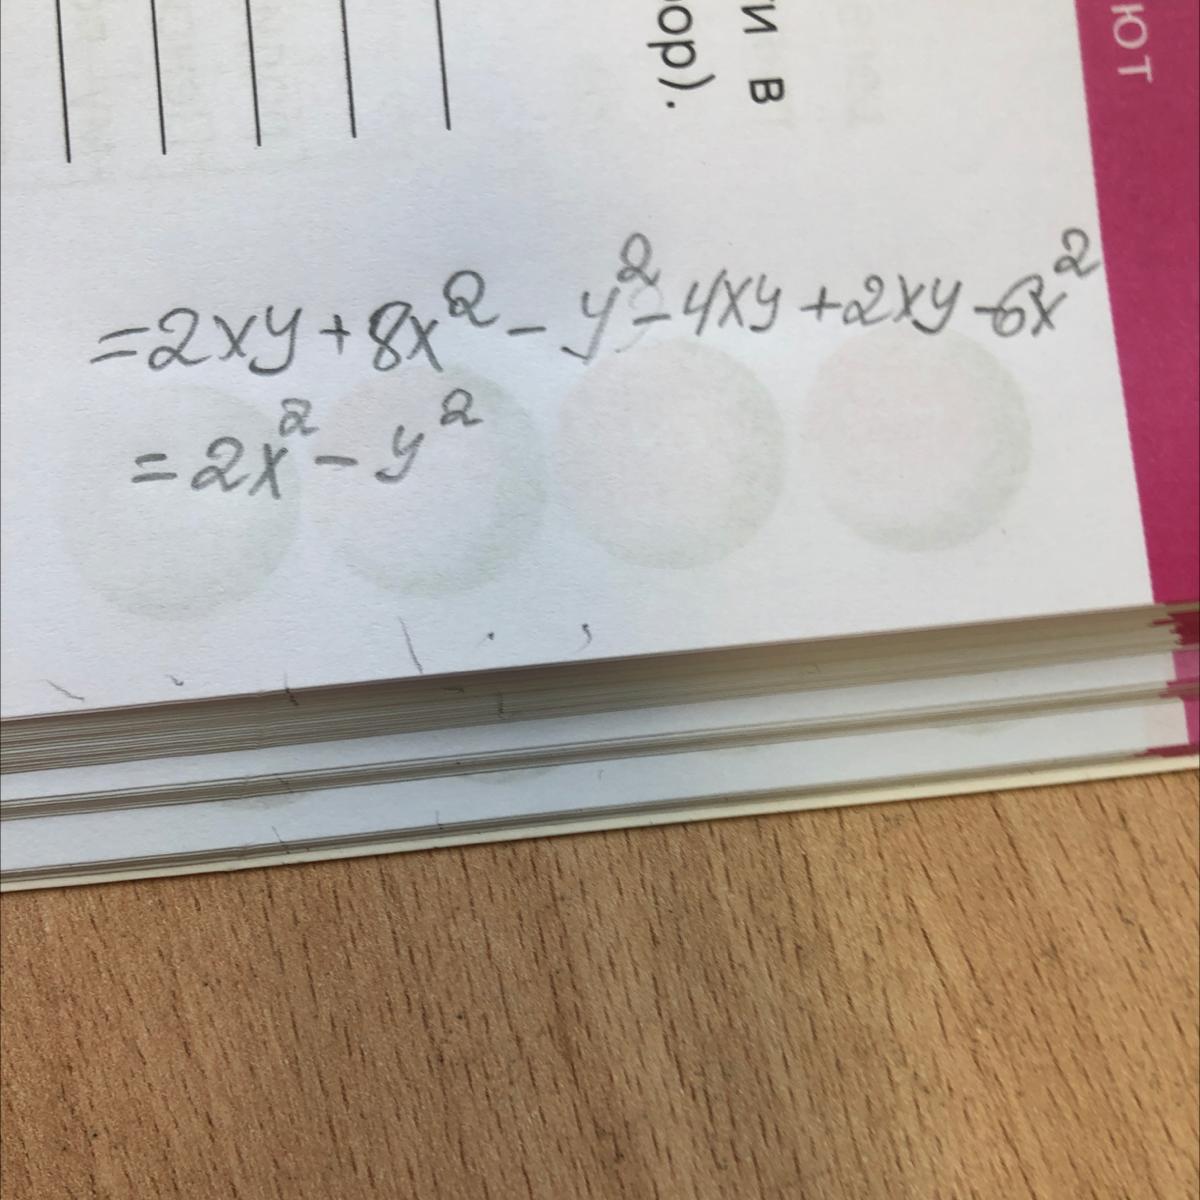 ют
ти в
ор).
=2xy+8x²-y²-4xy+2xy-6x²
=2x²-y²